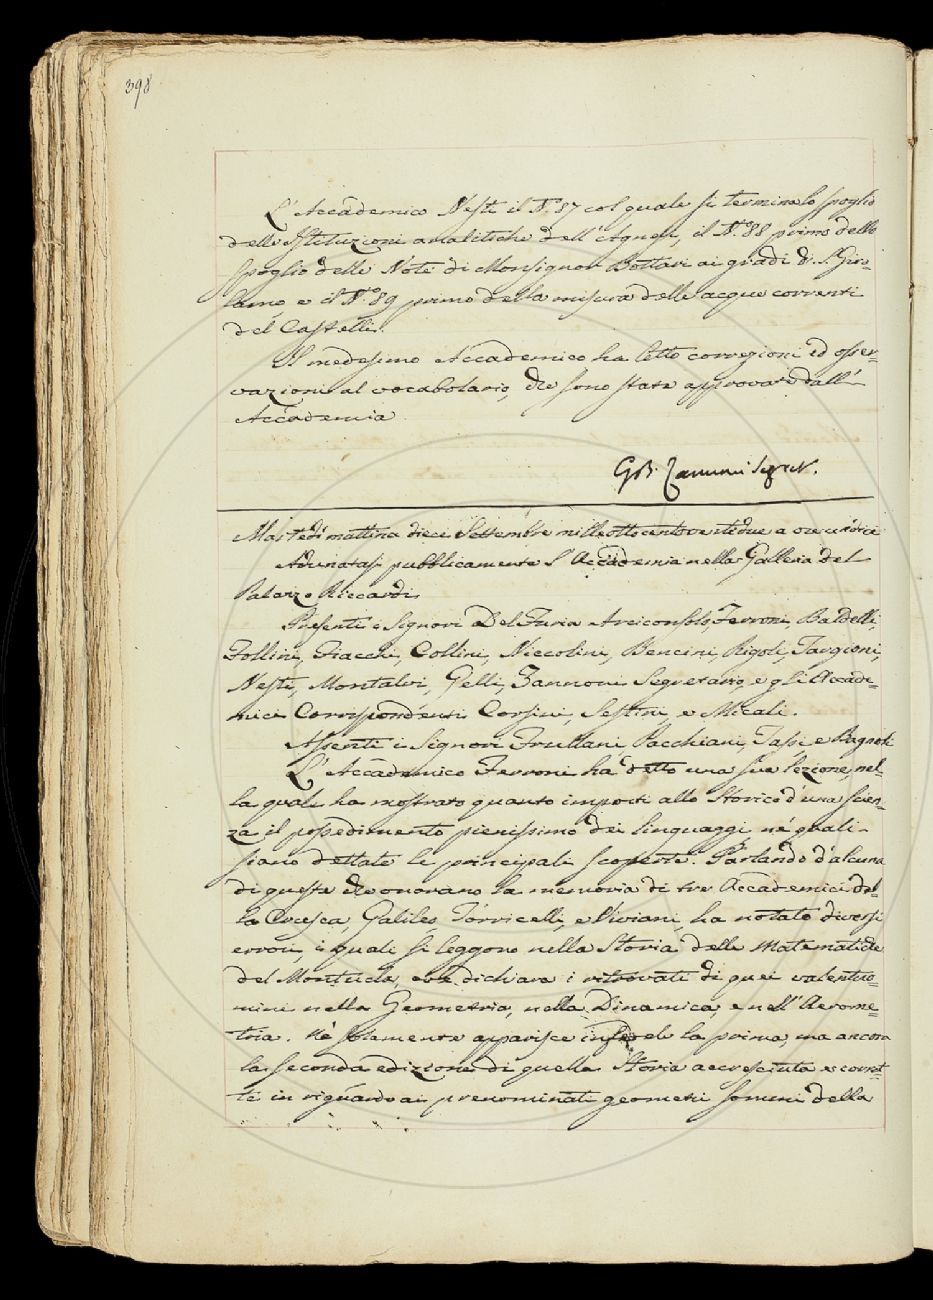 398
L'Accademico Nesti il N.° 87 col quale si termina lo spoglio
delle Istituzioni analitiche dell'Agnesi, il N.° 88 primo dello
spoglio delle Note di Monsignor Bottari ai gradi di S. Giro=
lamo e il N.° 89 primo della misura delle acque correnti
del Castelli.
Il medesimo Accademico ha letto correzioni ed osser=
vazioni al vocabolario, che sono state approvate dall'
Accademia
GB. Zannoni Segret.
Martedì mattina dieci Settembre milleottocentoventidue a ore undici
Adunatasi pubblicamente l'Accademia nella Galleria del
Palazzo Riccardi.
Presenti i Signori Del Furia Arciconsolo, Ferroni, Baldelli,
Follini, Fiacchi, Collini, Niccolini, Bencini, Rigoli, Targioni,
Nesti, Montalvi, Gelli, Zannoni Segretario, e gli Accade=
mici Corrispondenti Corsini, Sestini, e Micali.
Assenti i Signori Frullani, Pacchiani, Tassi, e Bagnoli
L'Accademico Ferroni ha detto una sua lezione, nel=
la quale ha mostrato quanto importi allo Storico d'una scien=
za il possedimento pienissimo dei linguaggi, ne' quali
siano dettate le principali scoperte. Parlando d'alcuna
di queste che onorano la memoria di tre Accademici del=
la Crusca, Galileo, Torricelli, e Viviani, ha notato diversi
errori, i quali si leggono nella Storia delle Matematiche
del Montucla, ove dichiara i ritrovati di quei valentuo=
mini nella Geometria, nella Dinamica, e nell'Aerome=
tria. Nè solamente apparisce infedele la prima, ma ancora
la seconda edizione di quella Storia accresciuta e corret=
ta in riguardo ai prenominati geometri sommi della